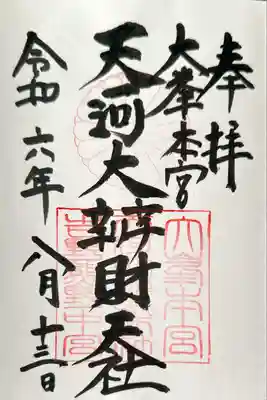 奉拝
大峯本宮
天河大辨財天社
令和六年八月十三日
大峯本宮